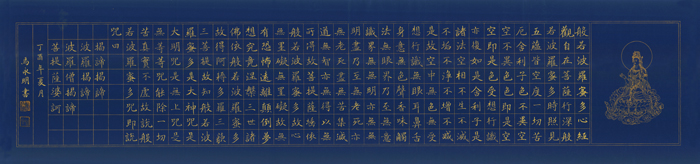 般若波羅蜜多心經
觀自在菩薩行深般
若波羅蜜多時照見
五蘊皆空度一切苦
厄舍利子色不異空
空不異色色即是空
空即是色受想行識
亦復如是舍利子是
諸法空相不生不滅
不垢不淨不增不減
是故空中無色無受
想行識無眼耳鼻舌
身意無色聲香味觸
法無眼界乃至無意
識界無無明亦無無
明盡乃至無老死亦
無老死盡無苦集滅
道無智亦無得以無
所得故菩提薩埵依
般若波羅蜜多故心
無罣礙無罣礙故無
有恐怖遠離顛倒夢
想究竟涅槃三世諸
佛依般若波羅蜜多
故得阿耨多羅三藐
三菩提故知般若波
羅蜜多是大神咒是
大明咒是無上咒是
無等等咒能除一切
苦真實不虛故說般
若波羅蜜多咒即說
咒曰
揭諦揭諦
波羅揭諦
波羅僧揭諦
菩提薩婆訶
年夏月
永明書